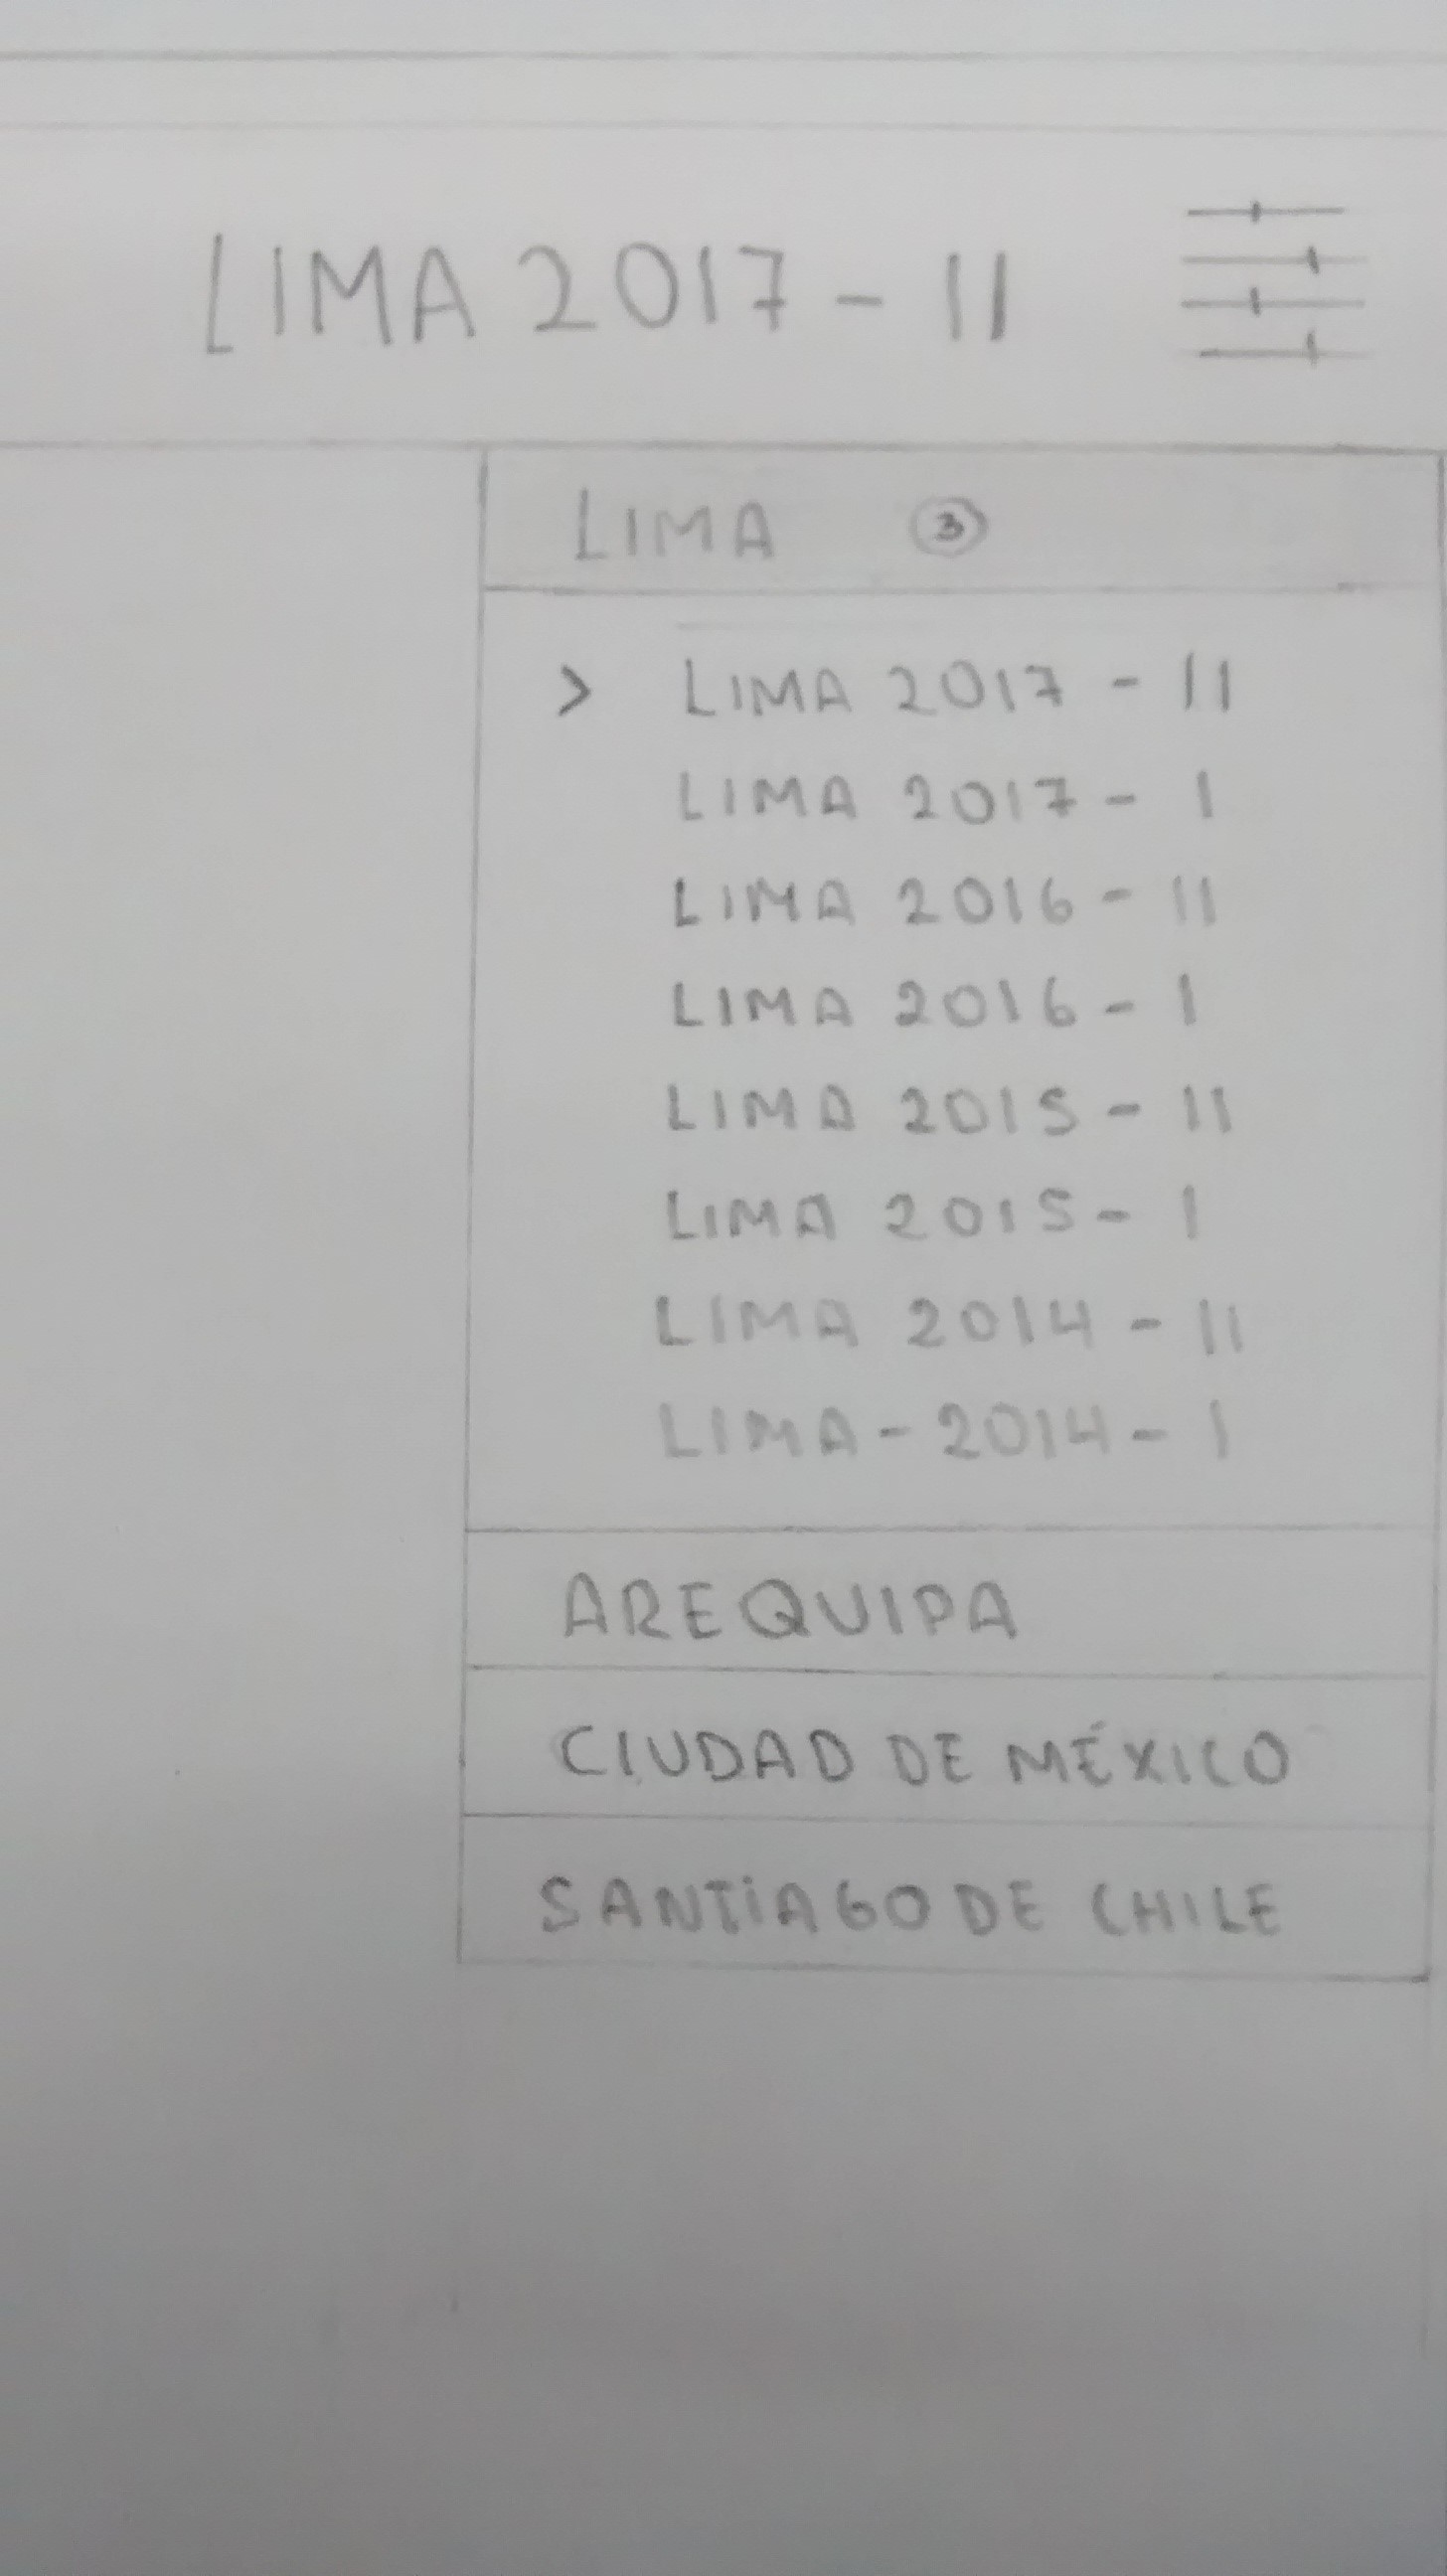 LIMA 2017 - II
LIMA 3
> LIMA 2017 - II
LIMA 2017 - I
LIMA 2016 - II
LIMA 2016 - I
LIMA 2015 - II
LIMA 2015 - I
LIMA 2014 - II
LIMA - 2014 - I
AREQUIPA
CIUDAD DE MÉXICO
SANTIAGO DE CHILE